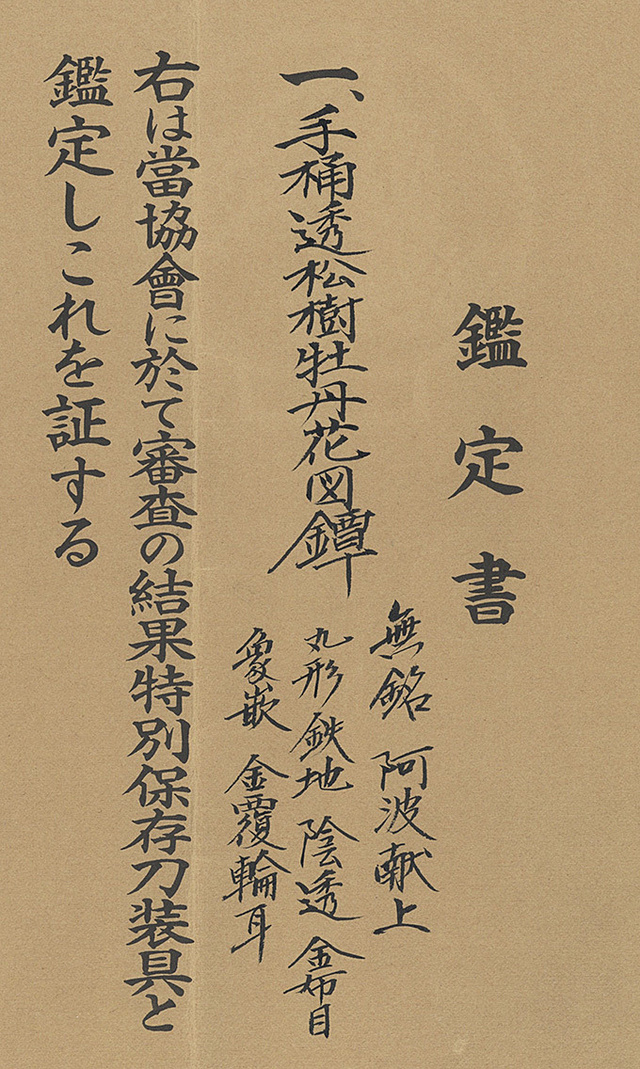 鑑定書
一、手桶透松樹牡丹花図鐔
無銘 阿波献上
丸形 鉄地 陰透 金布目
象嵌 金覆輪耳
右は當協會に於て審査の結果特別保存刀装具と
鑑定しこれを証する